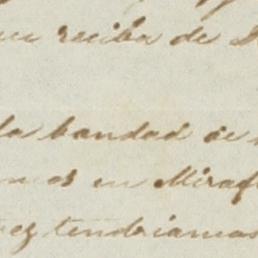 reciba de
la bondad de
en Miraf
tendriamos